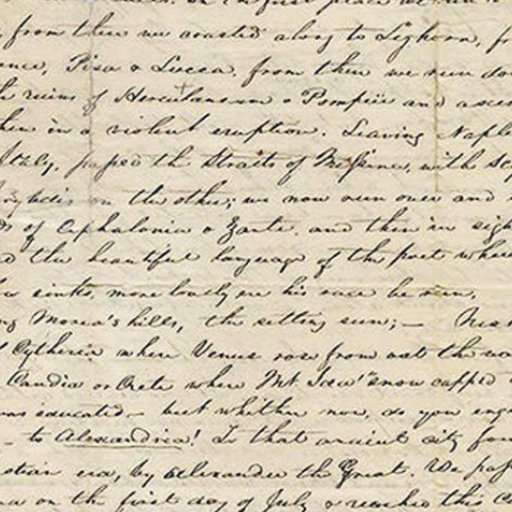 in first place we ran
from then we coasted along to Leghorn,
Pisa & Lucca, from then we run
ruins of Herculaneum & Pompeii and
in a violent eruption. Leaving
Italy, passed the Straits of Messina, with
on the other; we now run over and
of Cephalonia & Zante and then in
the beautiful language of the poet
sinks, more lovely ere his race be run,
Morea's hills, the setting sun; —
Cytheria where Venus rose from out the
Candia or Crete where Mt Ida's snow capped
was educated — but whither now, do you
— to Alexandria! In that ancient city
era, by Alexander the Great. We
on the first day of July & reached this